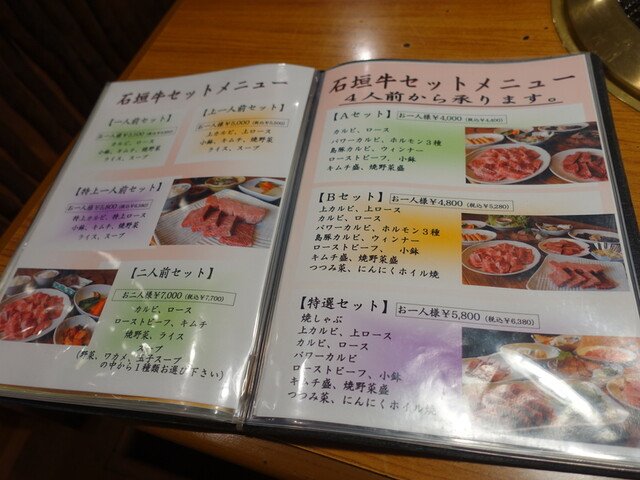 石垣牛セットメニュー
【一人前セット】
カルビ、ロース
小鉢、キムチ、焼野菜
ライス、スープ
【上一人前セット】
お一人様¥5,000
上カルビ、上ロース
小鉢、キムチ、焼野菜
ライス、スープ
【特上一人前セット】
特上カルビ、特上ロース
小鉢、キムチ、焼野菜
ライス、スープ
【二人前セット】
お二人様¥7,000(税込¥7,700)
カルビ、ロース
ローストビーフ、キムチ
焼野菜、ライス
スープ
(野菜、ワカメ、玉子スープ
の中から1種類お選び下さい)
石垣牛セットメニュー
4人前から承ります。
【Aセット】
お一人様¥4,000(税込¥4,400)
カルビ、ロース
パワーカルビ、ホルモン3種
島豚カルビ、ウィンナー
ローストビーフ、小鉢
キムチ盛、焼野菜盛
【Bセット】
お一人様¥4,800(税込¥5,280)
上カルビ、上ロース
カルビ、ロース
パワーカルビ、ホルモン3種
島豚カルビ、ウィンナー
ローストビーフ、小鉢
キムチ盛、焼野菜盛
つつみ菜、にんにくホイル焼
【特選セット】
お一人様¥5,800(税込¥6,380)
焼しゃぶ
上カルビ、上ロース
カルビ、ロース
パワーカルビ
ローストビーフ、小鉢
キムチ盛、焼野菜盛
つつみ菜、にんにくホイル焼